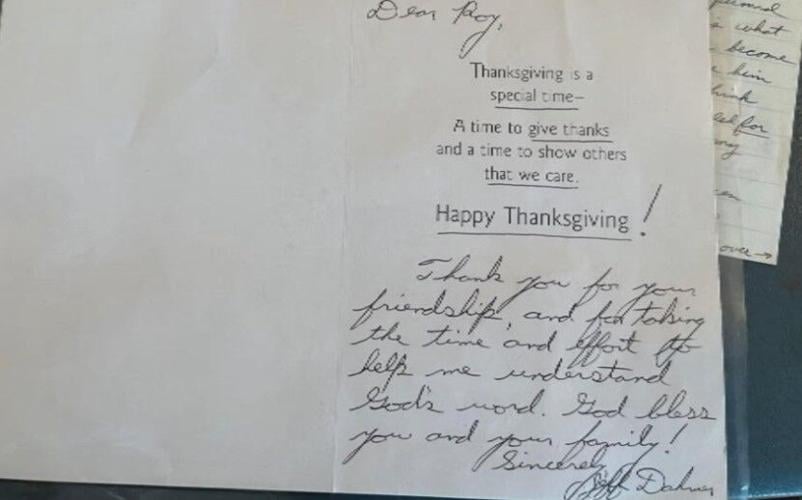 Dear Roy,
Thanksgiving is a
special time—
A time to give thanks
and a time to show others
that we care.
Happy Thanksgiving!
Thank you for your
friendship, and for taking
the time and effort to
help me understand
God's word. God bless
you and your family!
Sincerely,
Jeff Dahmer
what
become
him
for
over →